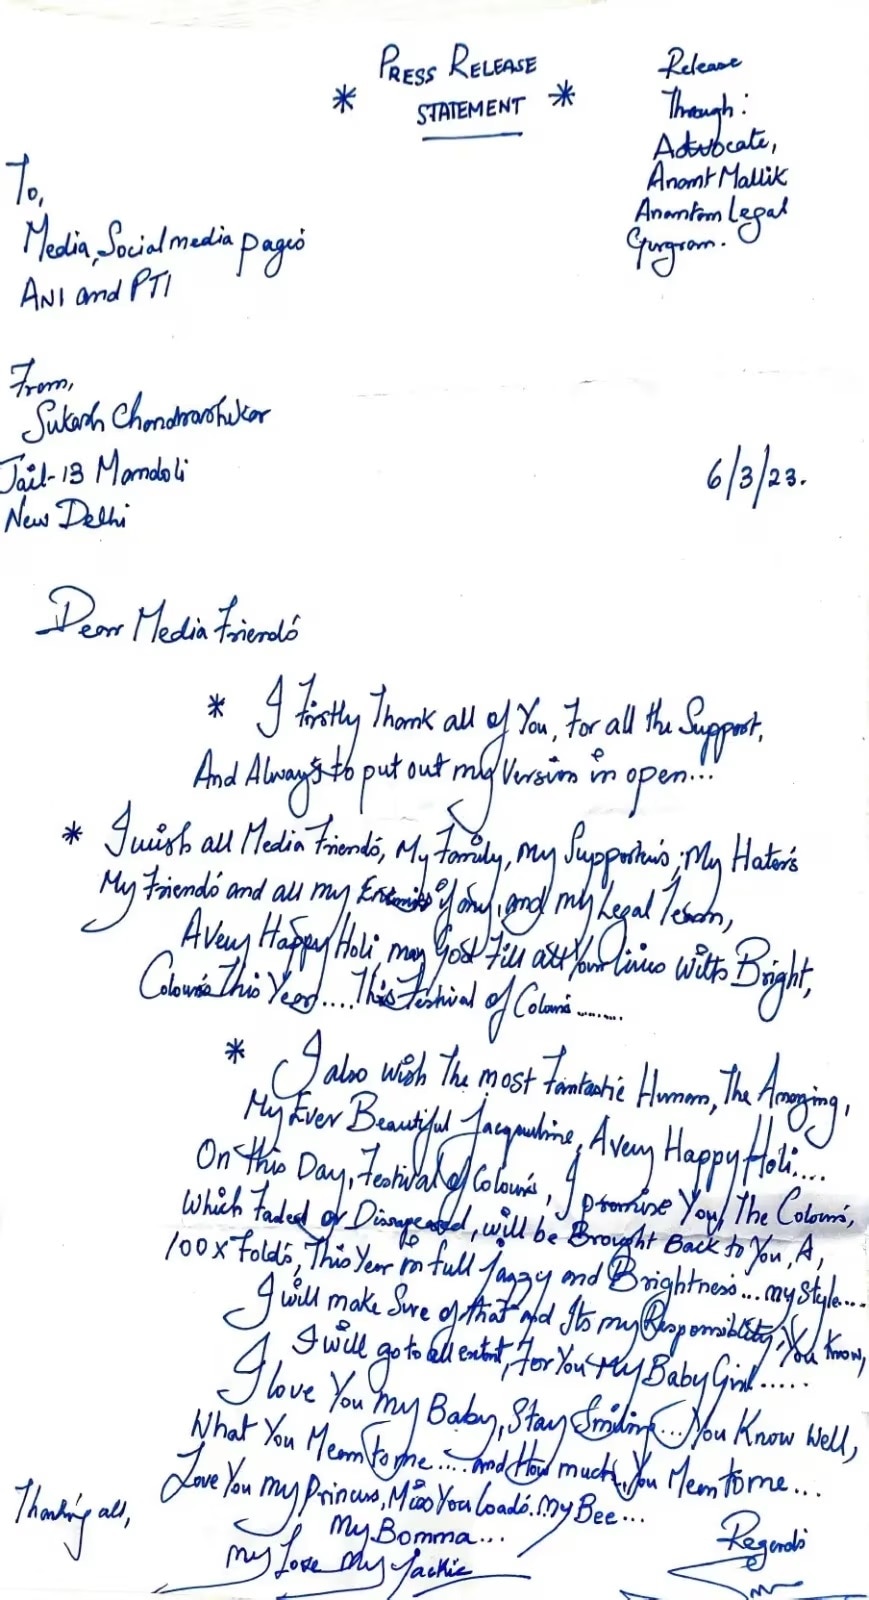 * PRESS RELEASE
STATEMENT *
Release
Through:
Advocate,
Anant Mallik
Anantam Legal
Gurgram.
To,
Media, Social media pages
ANI and PTI
From,
Sukash Chandrashekar
Jail-13 Mandoli
New Delhi
6/3/23.
Dear Media Friends
* I Firstly Thank all of You, For all the Support,
And Always to put out my Version in open...
* I wish all Media Friends, My Family, My Supporters, My Haters
My Friends and all my Enemies if any, and my Legal Team,
A Very Happy Holi, may God Fill all Your lives with Bright,
Colours This Year.... This Festival of Colours........
* I also wish The most Fantastic Human, The Amazing,
My Ever Beautiful Jacqueline, A very Happy Holi....
On this Day, Festival of Colours, I promise You, The Colours,
which Faded or Disappeared, will be Brought Back to You, A,
100x Folds, This Year in full Jazzy and Brightness... my style...
I will make Sure of that and Its my Responsibility, You Know,
I will go to all extent, For You My Baby Girl.....
I love You my Baby, Stay Smiling... You Know Well,
What You Mean to me.... and How much You Mean to me...
Love You my Princess, Miss You loads. My Bee...
My Bomma...
My Love My Jackie
Thanking all,
Regards